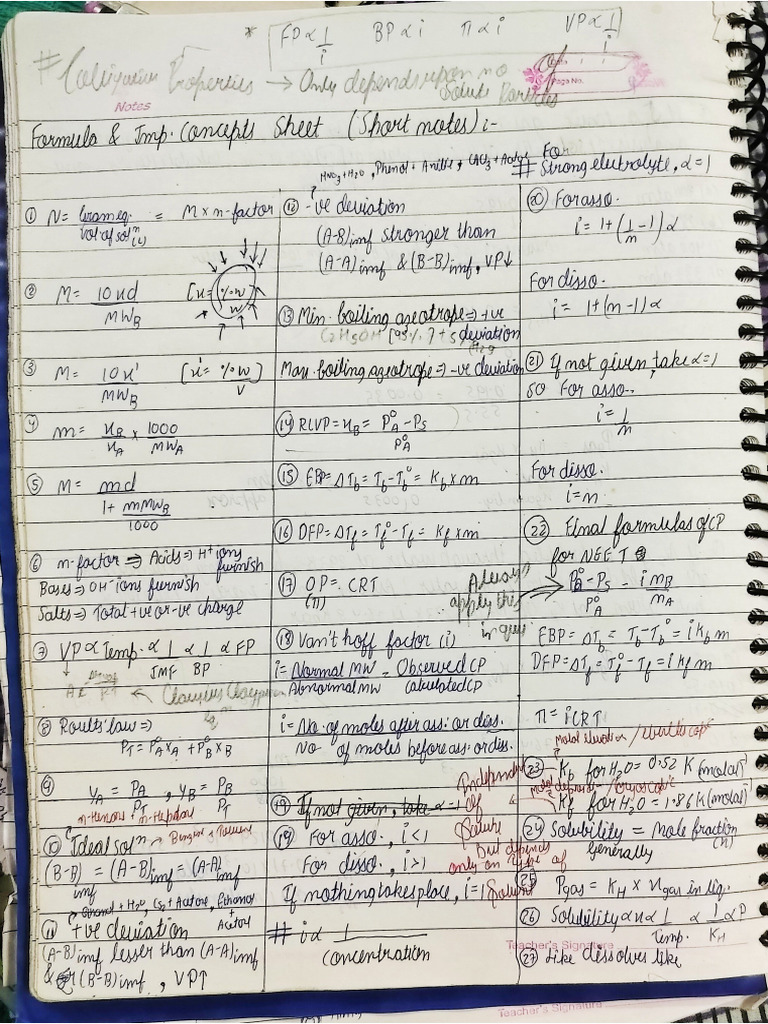 * FP ∝ 1/i BP ∝ i π ∝ i VP ∝ 1/i
# Colligative Properties → Only depends upon no of
Solute Particles
Page No.
Notes
Formula & Imp. Concepts Sheet (Short notes) :-
① N = Gram eq. / Vol of solⁿ (L) = M × n-factor
② M = 10xd / MWB [x = % w/w]
③ M = 10x' / MWB [x' = % w/V]
④ m = xB/xA × 1000/MWA
⑤ M = md / 1 + mMWB/1000
⑥ n-factor ⇒ Acids ⇒ H⁺ ions
furnish
Bases ⇒ OH⁻ ions furnish
Salts ⇒ Total +ve or -ve charge
⑦ VP ∝ Temp. ∝ 1/IMF ∝ 1/BP ∝ FP
← Clausius Clapeyron
Eqⁿ
⑧ Raoult's law ⇒
PT = P°A xA + P°B xB
⑨ yA = PA/PT , yB = PB/PT
n-Hexane + n-Heptane
⑩ Ideal solⁿ → Benzene + Toluene
(B-B)imf = (A-B)imf = (A-A)imf
Ethanol + H₂O, CS₂ + Acetone, Ethanol
+ Acetone
⑪ +ve deviation
(A-B)imf lesser than (A-A)imf
& (B-B)imf , VP↑
HNO₃ + H₂O, Phenol + Aniline, CHCl₃ + Acetone
⑫ -ve deviation
(A-B)imf stronger than
(A-A)imf & (B-B)imf, VP↓
⑬ Min. boiling azeotrope ⇒ +ve
deviation
C₂H₅OH [95%] + 5 H₂O
Max. boiling azeotrope ⇒ -ve deviation
⑭ RLVP = xB = P°A - PS / P°A
⑮ EBP = ΔTb = Tb - Tb° = Kb × m
⑯ DFP = ΔTf = Tf° - Tf = Kf × m
⑰ OP = CRT
(π)
⑱ Van't hoff factor (i)
i = Normal MW / Abnormal MW = Observed CP / Calculated CP
i = No. of moles after ass. or diss. / No. of moles before ass. or diss.
⑲ If not given, take α = 1
⑲ For asso. , i < 1
For disso. , i > 1
If nothing takes place, i = 1
# i ∝ 1 / Concentration
For
# Strong electrolyte, α = 1
⑳ For asso.
i = 1 + (1/n - 1) α
For disso.
i = 1 + (n - 1) α
㉑ If not given, take α = 1
so For asso.
i = 1/n
For disso.
i = n
㉒ Final formulas of CP
for NEET
Always
apply this
in ques
P°A - PS / P°A = i nB / nA
EBP = ΔTb = Tb - Tb° = i Kb m
DFP = ΔTf = Tf° - Tf = i Kf m
π = iCRT
Molal elevation / Ebullioscopic
㉓ Kb for H₂O = 0.52 K (molal)
Molal depression / cryoscopic
Kf for H₂O = 1.86 K (molal)
Independent
of
Solute
But depends
only on type of
Solvent
㉔ Solubility = Mole fraction
Generally (x)
㉕ Pgas = KH × xgas in liq.
㉖ Solubility ∝ x ∝ 1/Temp. ∝ 1/KH ∝ P
㉗ Like dissolves like
Teacher's Signature
Teacher's Signature